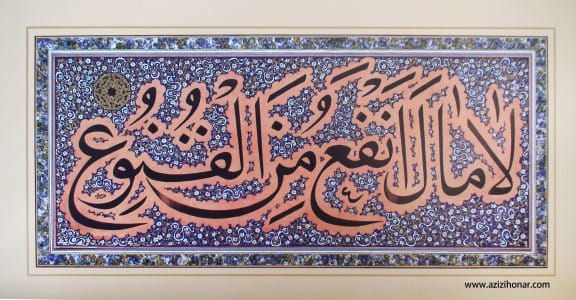 لا مال انفع مِنَ القُنُوعُ
www.azizihonar.com